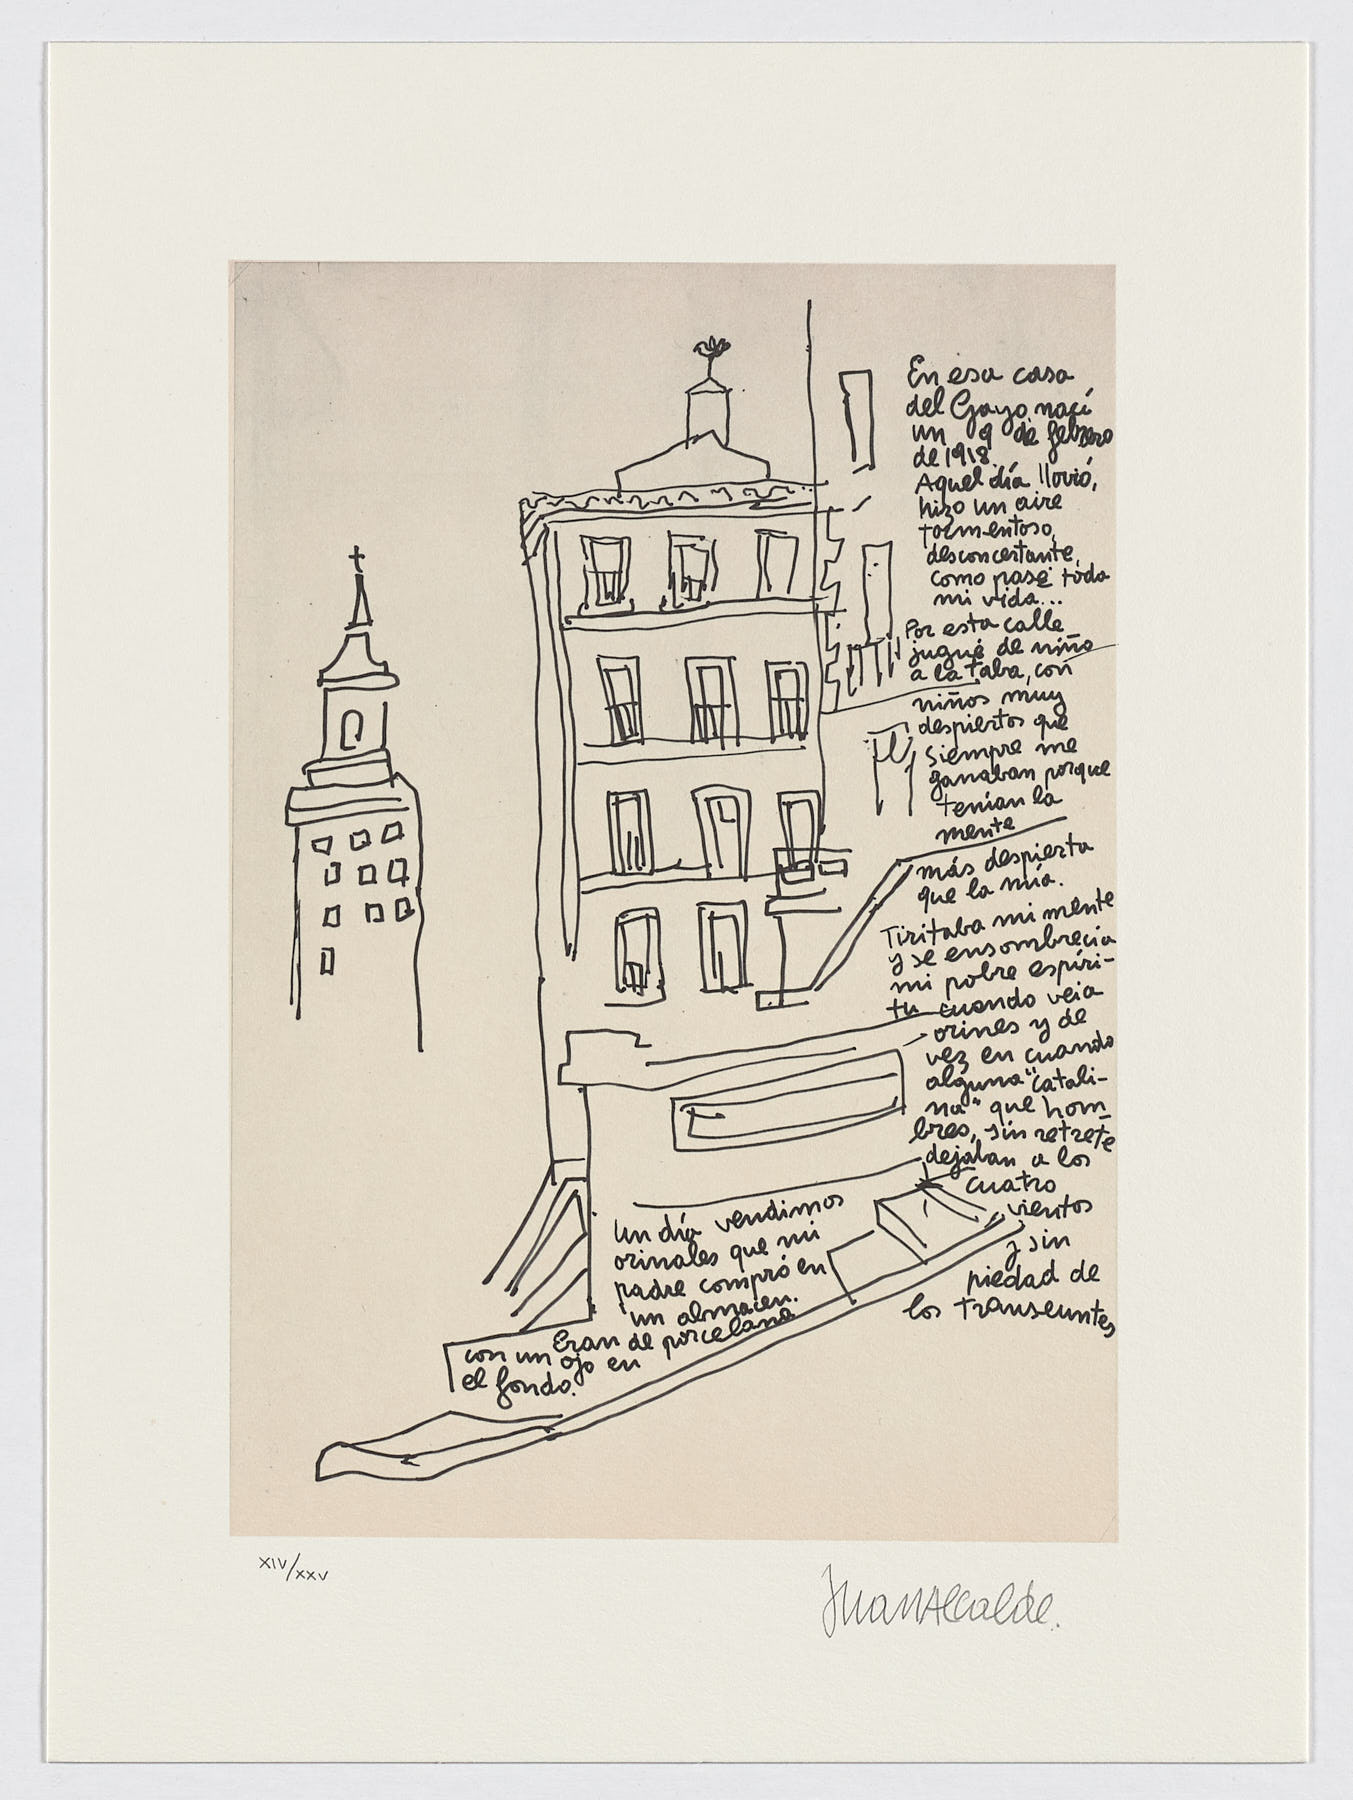 En esa casa
del Gayo nací
un 9 de febrero
de 1918.
Aquel día llovió,
hizo un aire
tormentoso,
desconcertante,
como pasé toda
mi vida...
Por esta calle
jugué de niño
a la taba, con
niños muy
despiertos que
siempre me
ganaban porque
tenían la
mente
más despierta
que la mía.
Tiritaba mi mente
y se ensombrecía
mi pobre espíri-
tu cuando veía
orines y de
vez en cuando
alguna "catali-
na" que hom
bres, sin retrete
dejaban a los
cuatro
vientos
y sin
piedad de
los transeuntes
Un día vendimos
orinales que mi
padre compró en
un almacen.
Eran de porcelana
con un ojo en
el fondo.
XIV/XXV
Juan Alcalde.